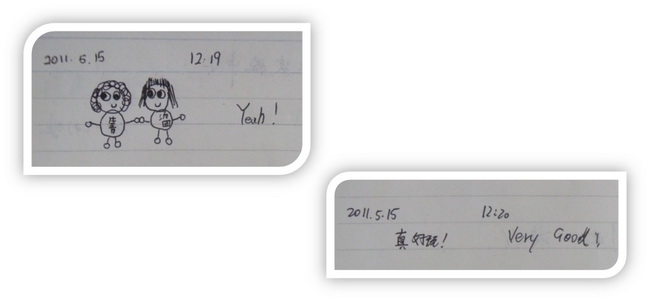 2011.5.15 12:19
Yeah!
2011.5.15 12:20
真好玩! Very Good!